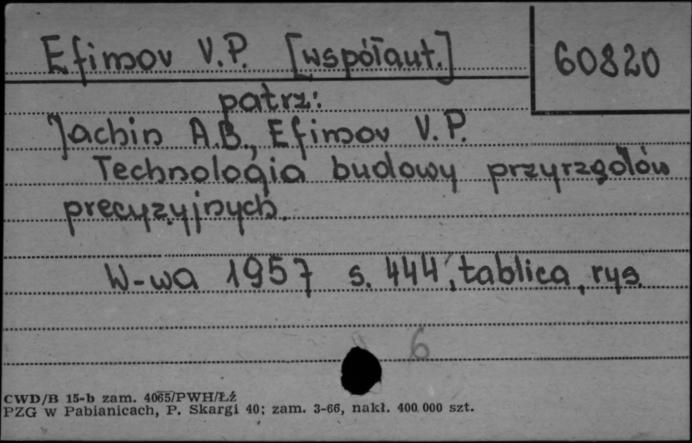 Efimov V.P. [współaut.]
60820
patrz:
Jachin A.B., Efimov V.P.
Technologia budowy przyrządów
precyzyjnych.
W-wa 1957 s. 444, tablica, rys.
6
CWD/B 15-b zam. 4065/PWH/Łź
PZG w Pabianicach, P. Skargi 40; zam. 3-66, nakł. 400 000 szt.